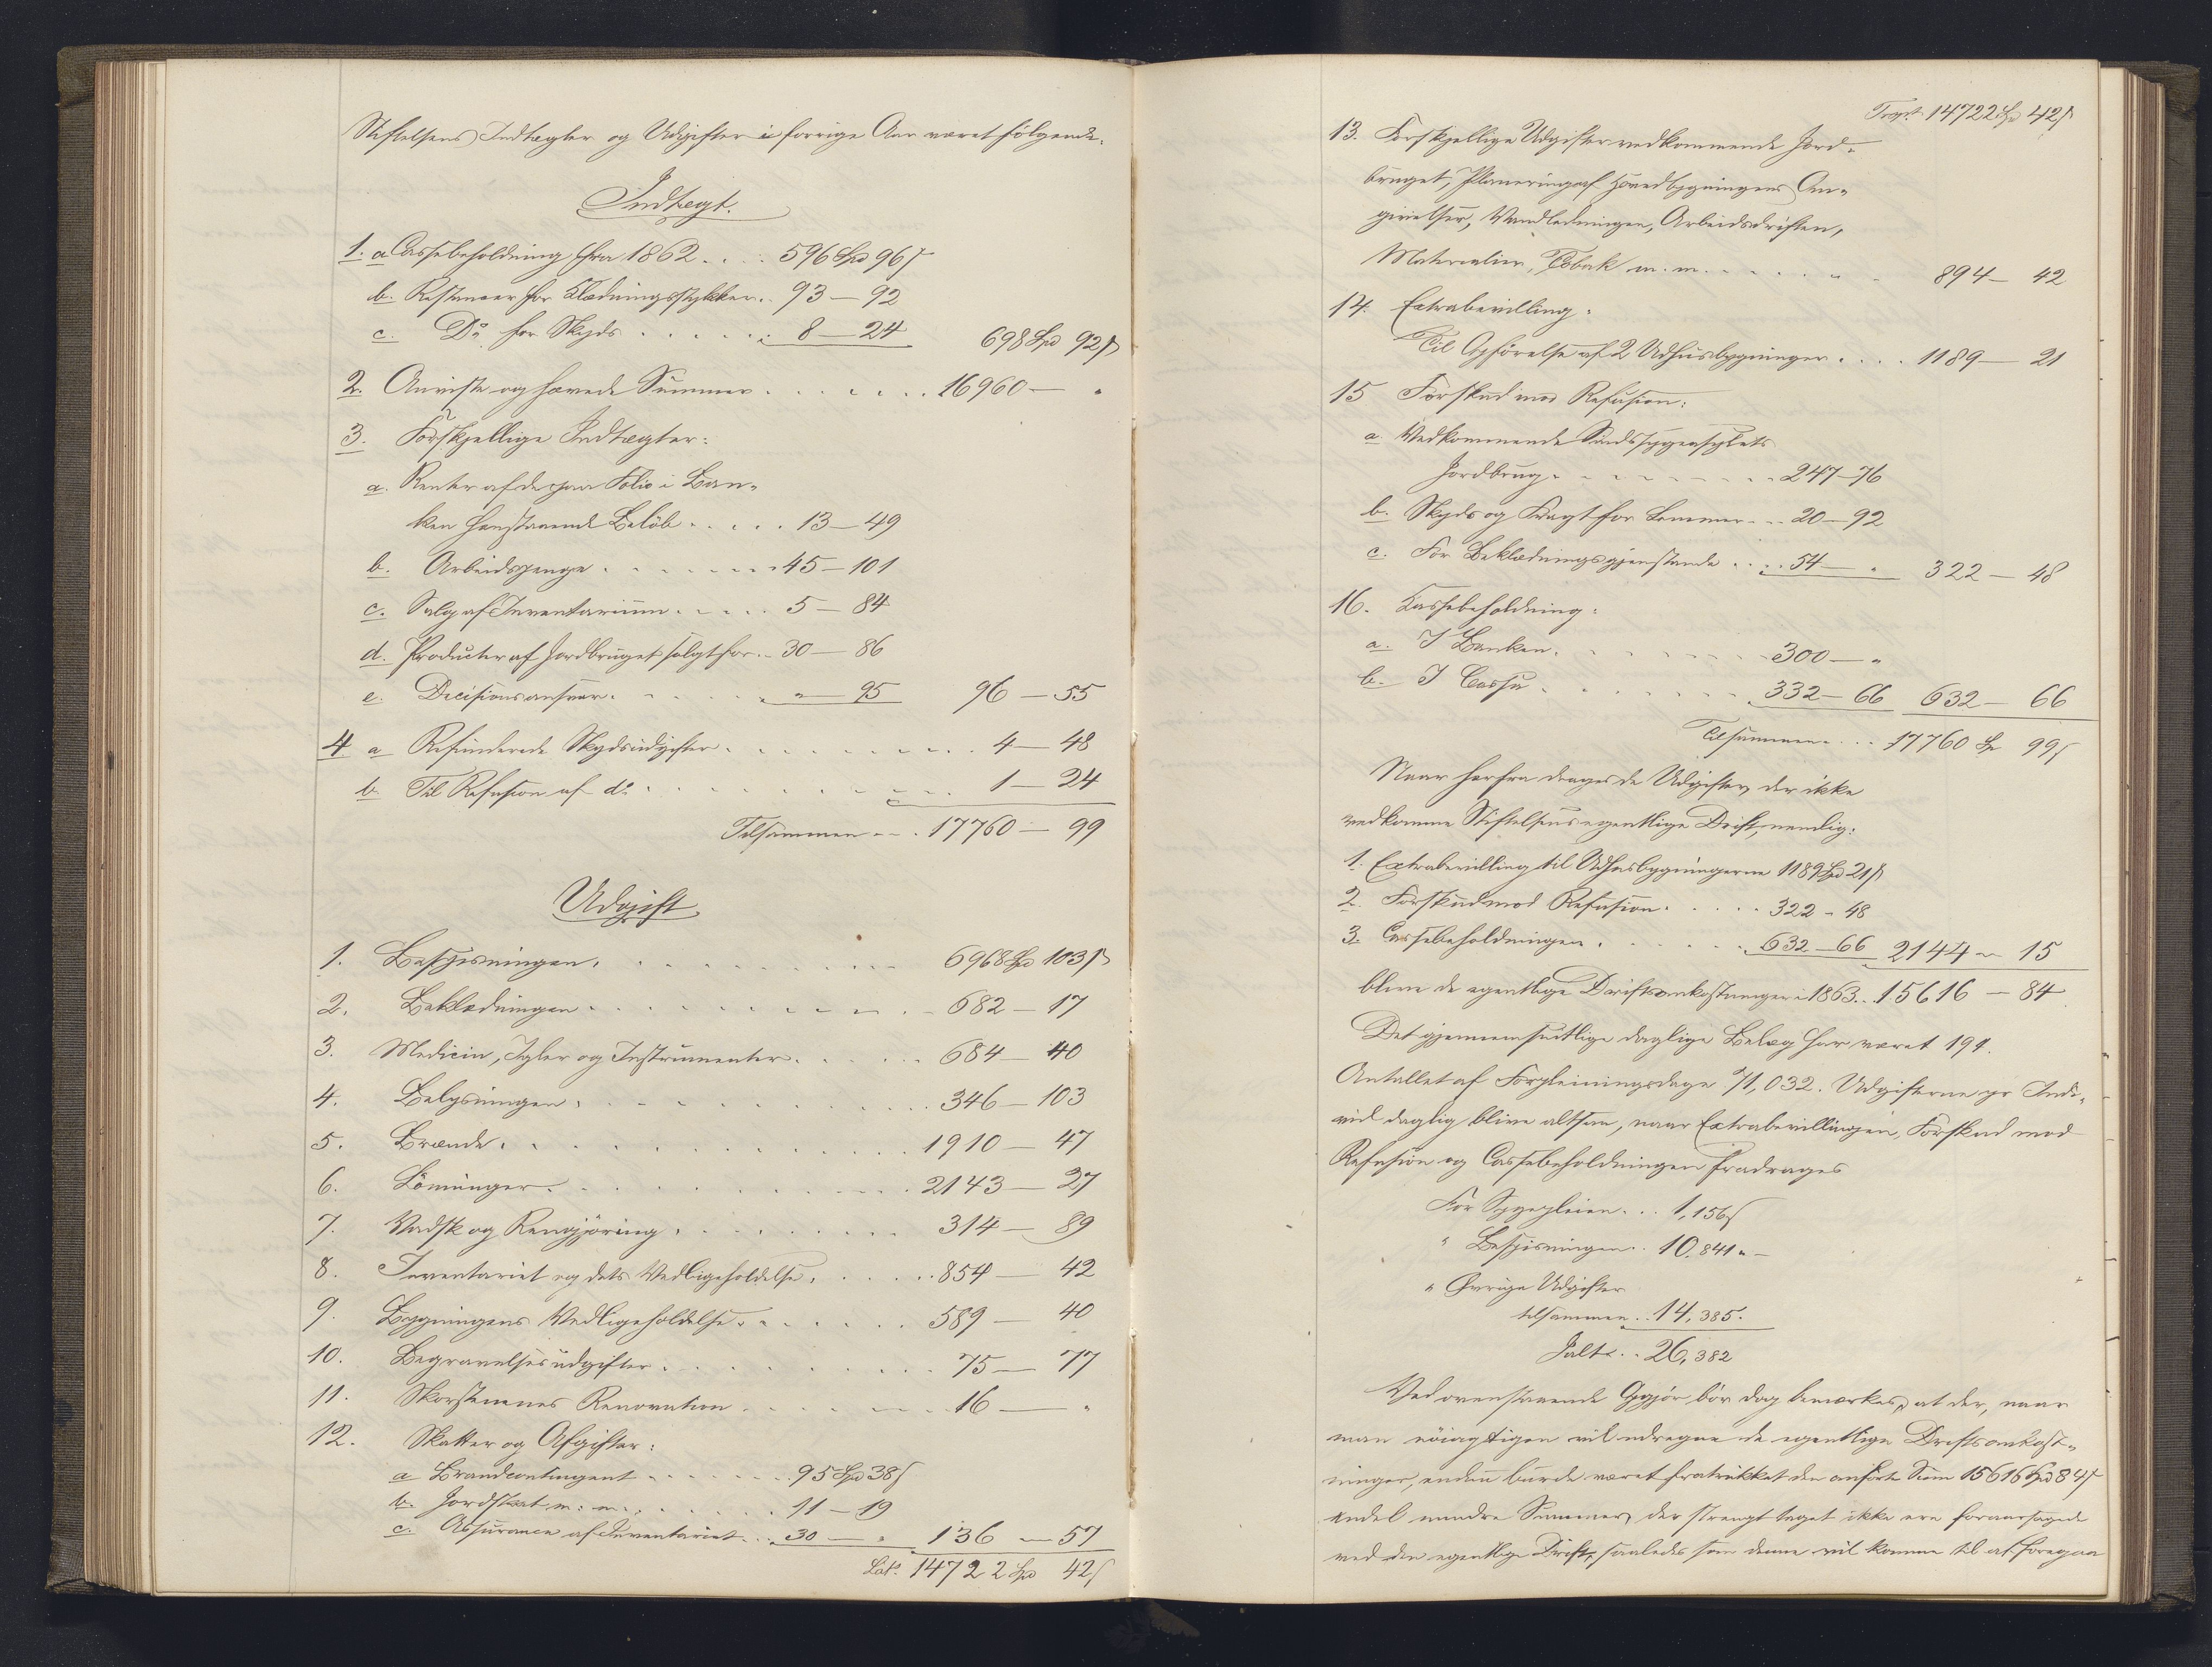 Stiftelsens Indtægter og Udgifter i forrige Aar været følgende.
Indtægt.
1. a Cassebeholdning fra 1862 . . . . 596 Spd 96 ß
b. Restancer for Klædningsstykker . . 93 — 92
c. Do for Skyds . . . . . . 8 — 24 698 Spd 92 ß
2. Anviste og hævede Summer . . . . . . . 16960 — "
3. Forskjellige Indtægter:
a. Renter af de paa Folio i Ban-
ken henstaaende Beløb . . . . . 13 — 49
b. Arbeidspenge . . . . . . . 45 — 101
c. Salg af Inventarium . . . . . 5 — 84
d. Producter af Jordbruget solgt for . . 30 — 86
e. Decisionsansvar . . . . . " — 95 96 — 55
4 a Refunderede Skydsudgifter . . . . . . . . . . 4 — 48
b Til Refusion af do . . . . . . . . . . . 1 — 24
Tilsammen . . . 17760 — 99
Udgift
1. Bespisningen . . . . . . . . . . . 6968 Spd 103 ß
2. Beklædningen . . . . . . . . . . . 682 — 17
3. Medicin, Igler og Instrumenter . . . . . 684 — 40
4. Belysningen . . . . . . . . . . . . 346 — 103
5. Brænde . . . . . . . . . . . . . 1910 — 47
6. Lønninger . . . . . . . . . . . . 2143 — 27
7. Vadsk og Rengjøring . . . . . . . . 314 — 89
8. Inventariet og dets Vedligeholdelse . . . . . 854 — 42
9. Bygningens Vedligeholdelse . . . . . . 589 — 40
10. Begravelsesudgifter . . . . . . . . 75 — 77
11. Skorstenenes Renovation . . . . . . . 16 — "
12. Skatter og Afgifter:
a Brandcontingent . . . . . . . 95 Spd 38 ß
b. Jordskat m: m: . . . . . . . 11 — 19
c. Assurance af Inventariet . . . 30 — " 136 — 57
Lat. 14722 Spd 42 ß
Trspt. 14722 Spd 42 ß
13. Forskjellige Udgifter vedkommende Jord-
bruget, Planering af Hovedbygningens Om-
givelser, Vandledningen, Arbeidsdriften,
Materialier, Tobak m. m. . . . . . . . 894 — 42
14. Extrabevilling:
Til Opførelse af 2 Udhusbygninger . . . . 1189 — 21
15 Forskud mod Refusion:
a. Vedkommende Sindssygeasylets
Jordbrug . . . . . . . . . 247 — 76
b. Skyds og Fragt for Lemmer . . . 20 — 92
c. For Beklædningsgjenstande . . . . 54 — " 322 — 48
16. Kassebeholdning:
a. I Banken . . . . . . . . . 300 — "
b. I Cassa . . . . . . . . . 332 — 66 632 — 66
Tilsammen . . . 17760 Sp 99 ß
Naar herfra drages de Udgifter, der ikke
vedkomme Stiftelsens egentlige Drift, nemlig:
1. Extrabevilling til Udhusbygningerne 1189 Spd 21 ß
2. Forskud mod Refusion . . . . . 322 - 48
3. Cassebeholdningen . . . . . . . 632 — 66 2144 — 15
blive de egentlige Driftsomkostninger i 1863 . . 15616 — 84
Det gjennemsnitlige daglige Belæg har været 194.
Antallet af Forpleiningsdage 71,032. Udgifterne pr Indi-
vid daglig blive altsaa, naar Extrabevillingen, Forskud mod
Refusion og Cassebeholdningen fradrages
For Sygepleien . . . 1,156 ß
" Bespisningen . . 10.841 " —
" Øvrige Udgifter
tilsammen . . 14,385.
Ialt . . . 26,382
Ved ovenstaaende Opgjør bør dog bemærkes, at der, naar
man nøiagtigen vil udregne de egentlige Driftsomkost-
ninger, endnu burde været fratrukket den anførte Sum 15616 Spd 84 ß
endel mindre Summer, der strengt taget ikke ere foraarsagede
ved den egentlige Drift, saaledes som denne vil komme til at foregaa